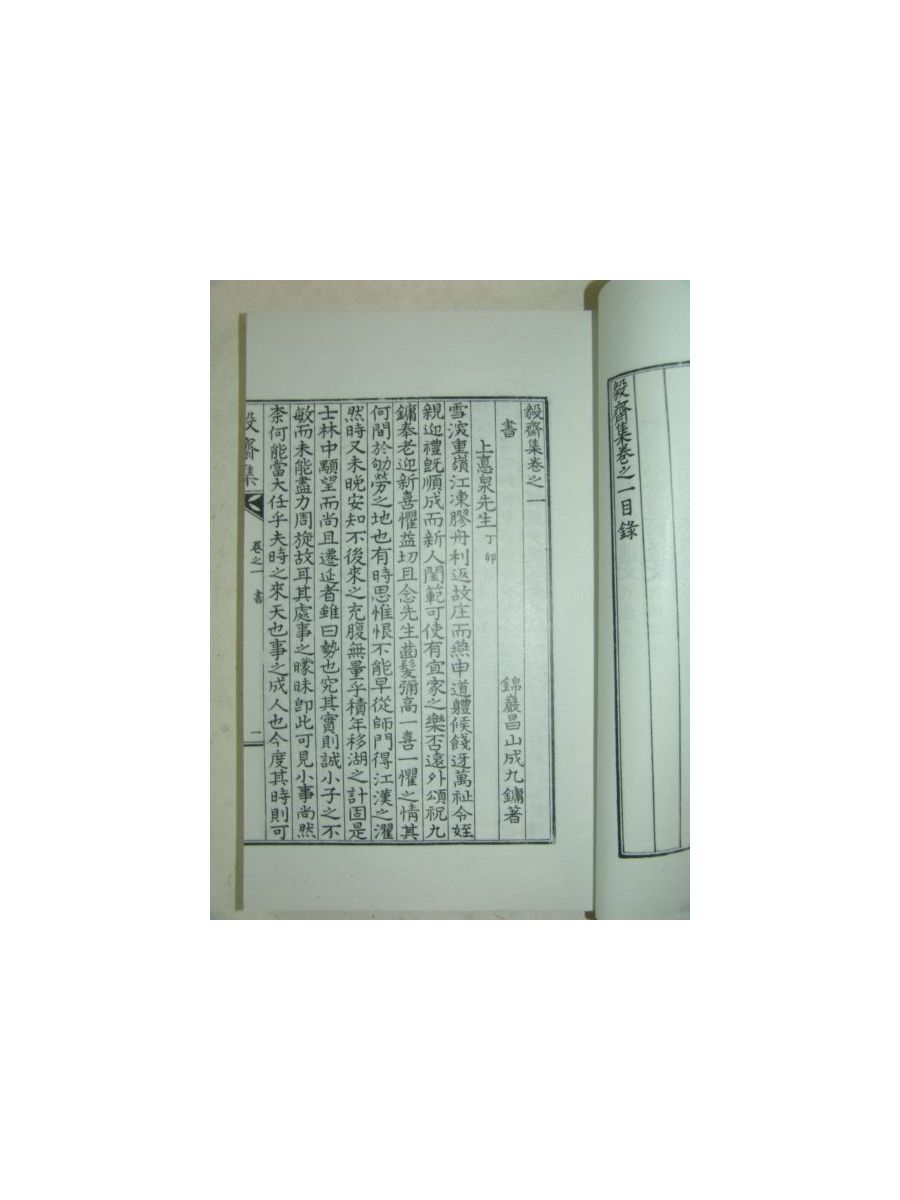 毅齋集卷之一目錄
毅齋集卷之一
書 錦巖昌山成九鏞著
上悳泉先生 丁卯
雪深重嶺江凍膠舟利返故庄而燕申道軆候餞迓萬祉令姪
親迎禮旣順成而新人閨範可使有宜家之樂否遠外頌祝九
鏞奉老迎新喜懼益切且念先生齒髮彌高一喜一懼之情其
何間於劬勞之地也有時思惟恨不能早從師門得江漢之濯
然時又未晚安知不後來之充腹無量乎積年移湖之計固是
士林中顒望而尚且遷延者雖曰勢也究其實則誠小子之不
敏而未能盡力周旋故耳其處事之曚昧卽此可見小事尚然
柰何能當大任乎夫時之來天也事之成人也今度其時則可
毅齋集 卷之一 書 一